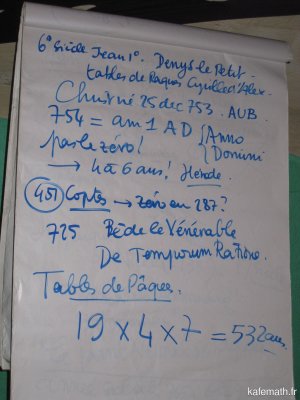 6e siècle Jean 1°. Denys le Petit.
tables de Paques Cyrille d'Alex.
Christ né 25 dec 753. AUB
754 = am 1 AD { Anno
pas le zéro! { Domini
→ 4 à 6 ans! Herode.
451 Coptes → zéro en 287?
725 Bède le Vénérable
De Temporum Ratione.
Tables de Pâques.
19 x 4 x 7 = 532 ans
kafemath.fr